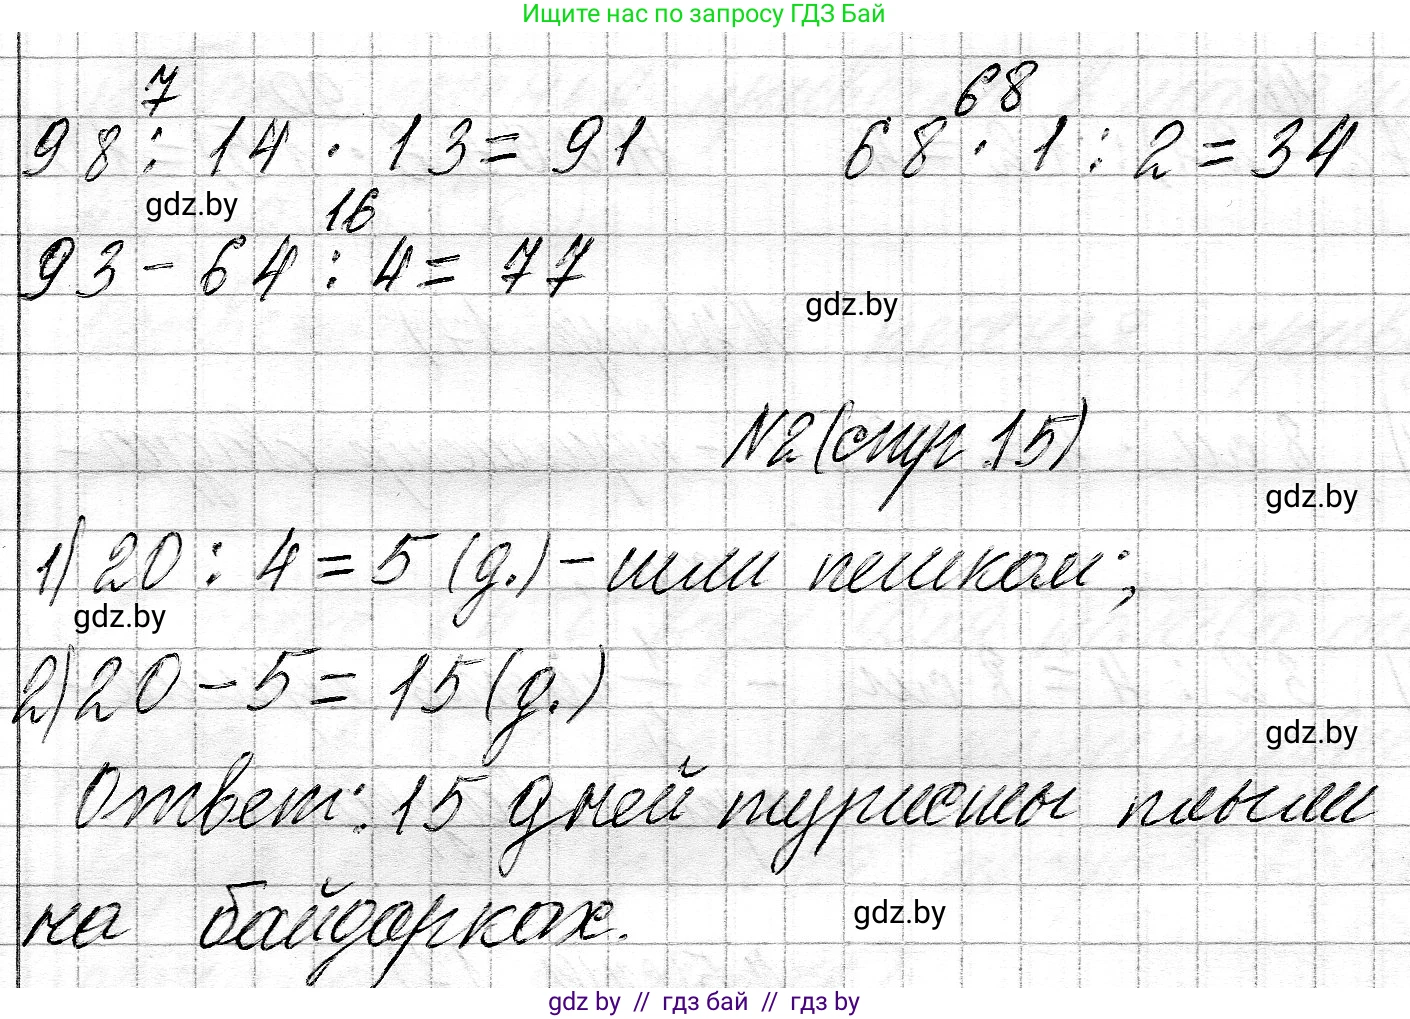 Ищите нас по запросу ГДЗ Бай
7 68
98 : 14 · 13 = 91 68 · 1 : 2 = 34
gdz.by 16
93 - 64 : 4 = 77
gdz.by
N2 (стр 15)
gdz.by
1) 20 : 4 = 5 (д.) - шли пешком;
gdz.by
2) 20 - 5 = 15 (д.)
gdz.by
Ответ: 15 дней туристы плыли
на байдарках.
gdz.by
gdz by // гдз бай // гдз by